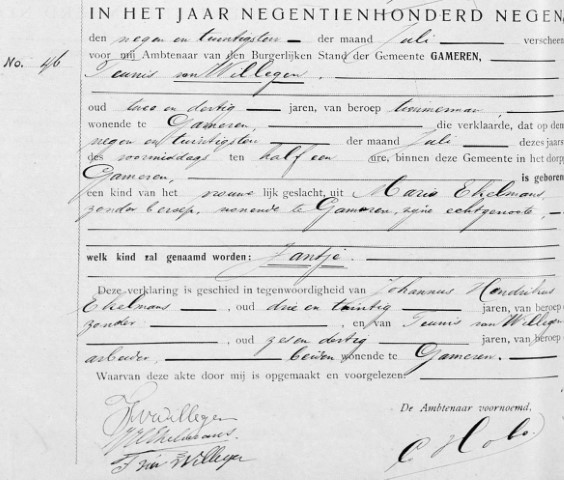 IN HET JAAR NEGENTIENHONDERD NEGEN,
den negen en twintigsten der maand Juli verscheen
voor mij Ambtenaar van den Burgerlijken Stand der Gemeente GAMEREN,
No. 46 Teunis van Willegen,
oud twee en dertig jaren, van beroep timmerman
wonende te Gameren, die verklaarde, dat op den
negen en twintigsten der maand Juli dezes jaars
des voormiddags ten half een ure, binnen deze Gemeente in het dorp
Gameren, is geboren
een kind van het vrouwelijk geslacht, uit Maria Ekelmans,
zonder beroep, wonende te Gameren, zijne echtgenoote,
welk kind zal genaamd worden: Jantje.
Deze verklaring is geschied in tegenwoordigheid van Johannes Hendrikus
Ekelmans, oud drie en twintig jaren, van beroep
zonder, en van Teunis van Willegen
oud zes en dertig jaren, van beroep
arbeider, beiden wonende te Gameren.
Waarvan deze akte door mij is opgemaakt en voorgelezen.
De Ambtenaar voornoemd.
T v Willegen
JH Ekelmans.
T van Willegen